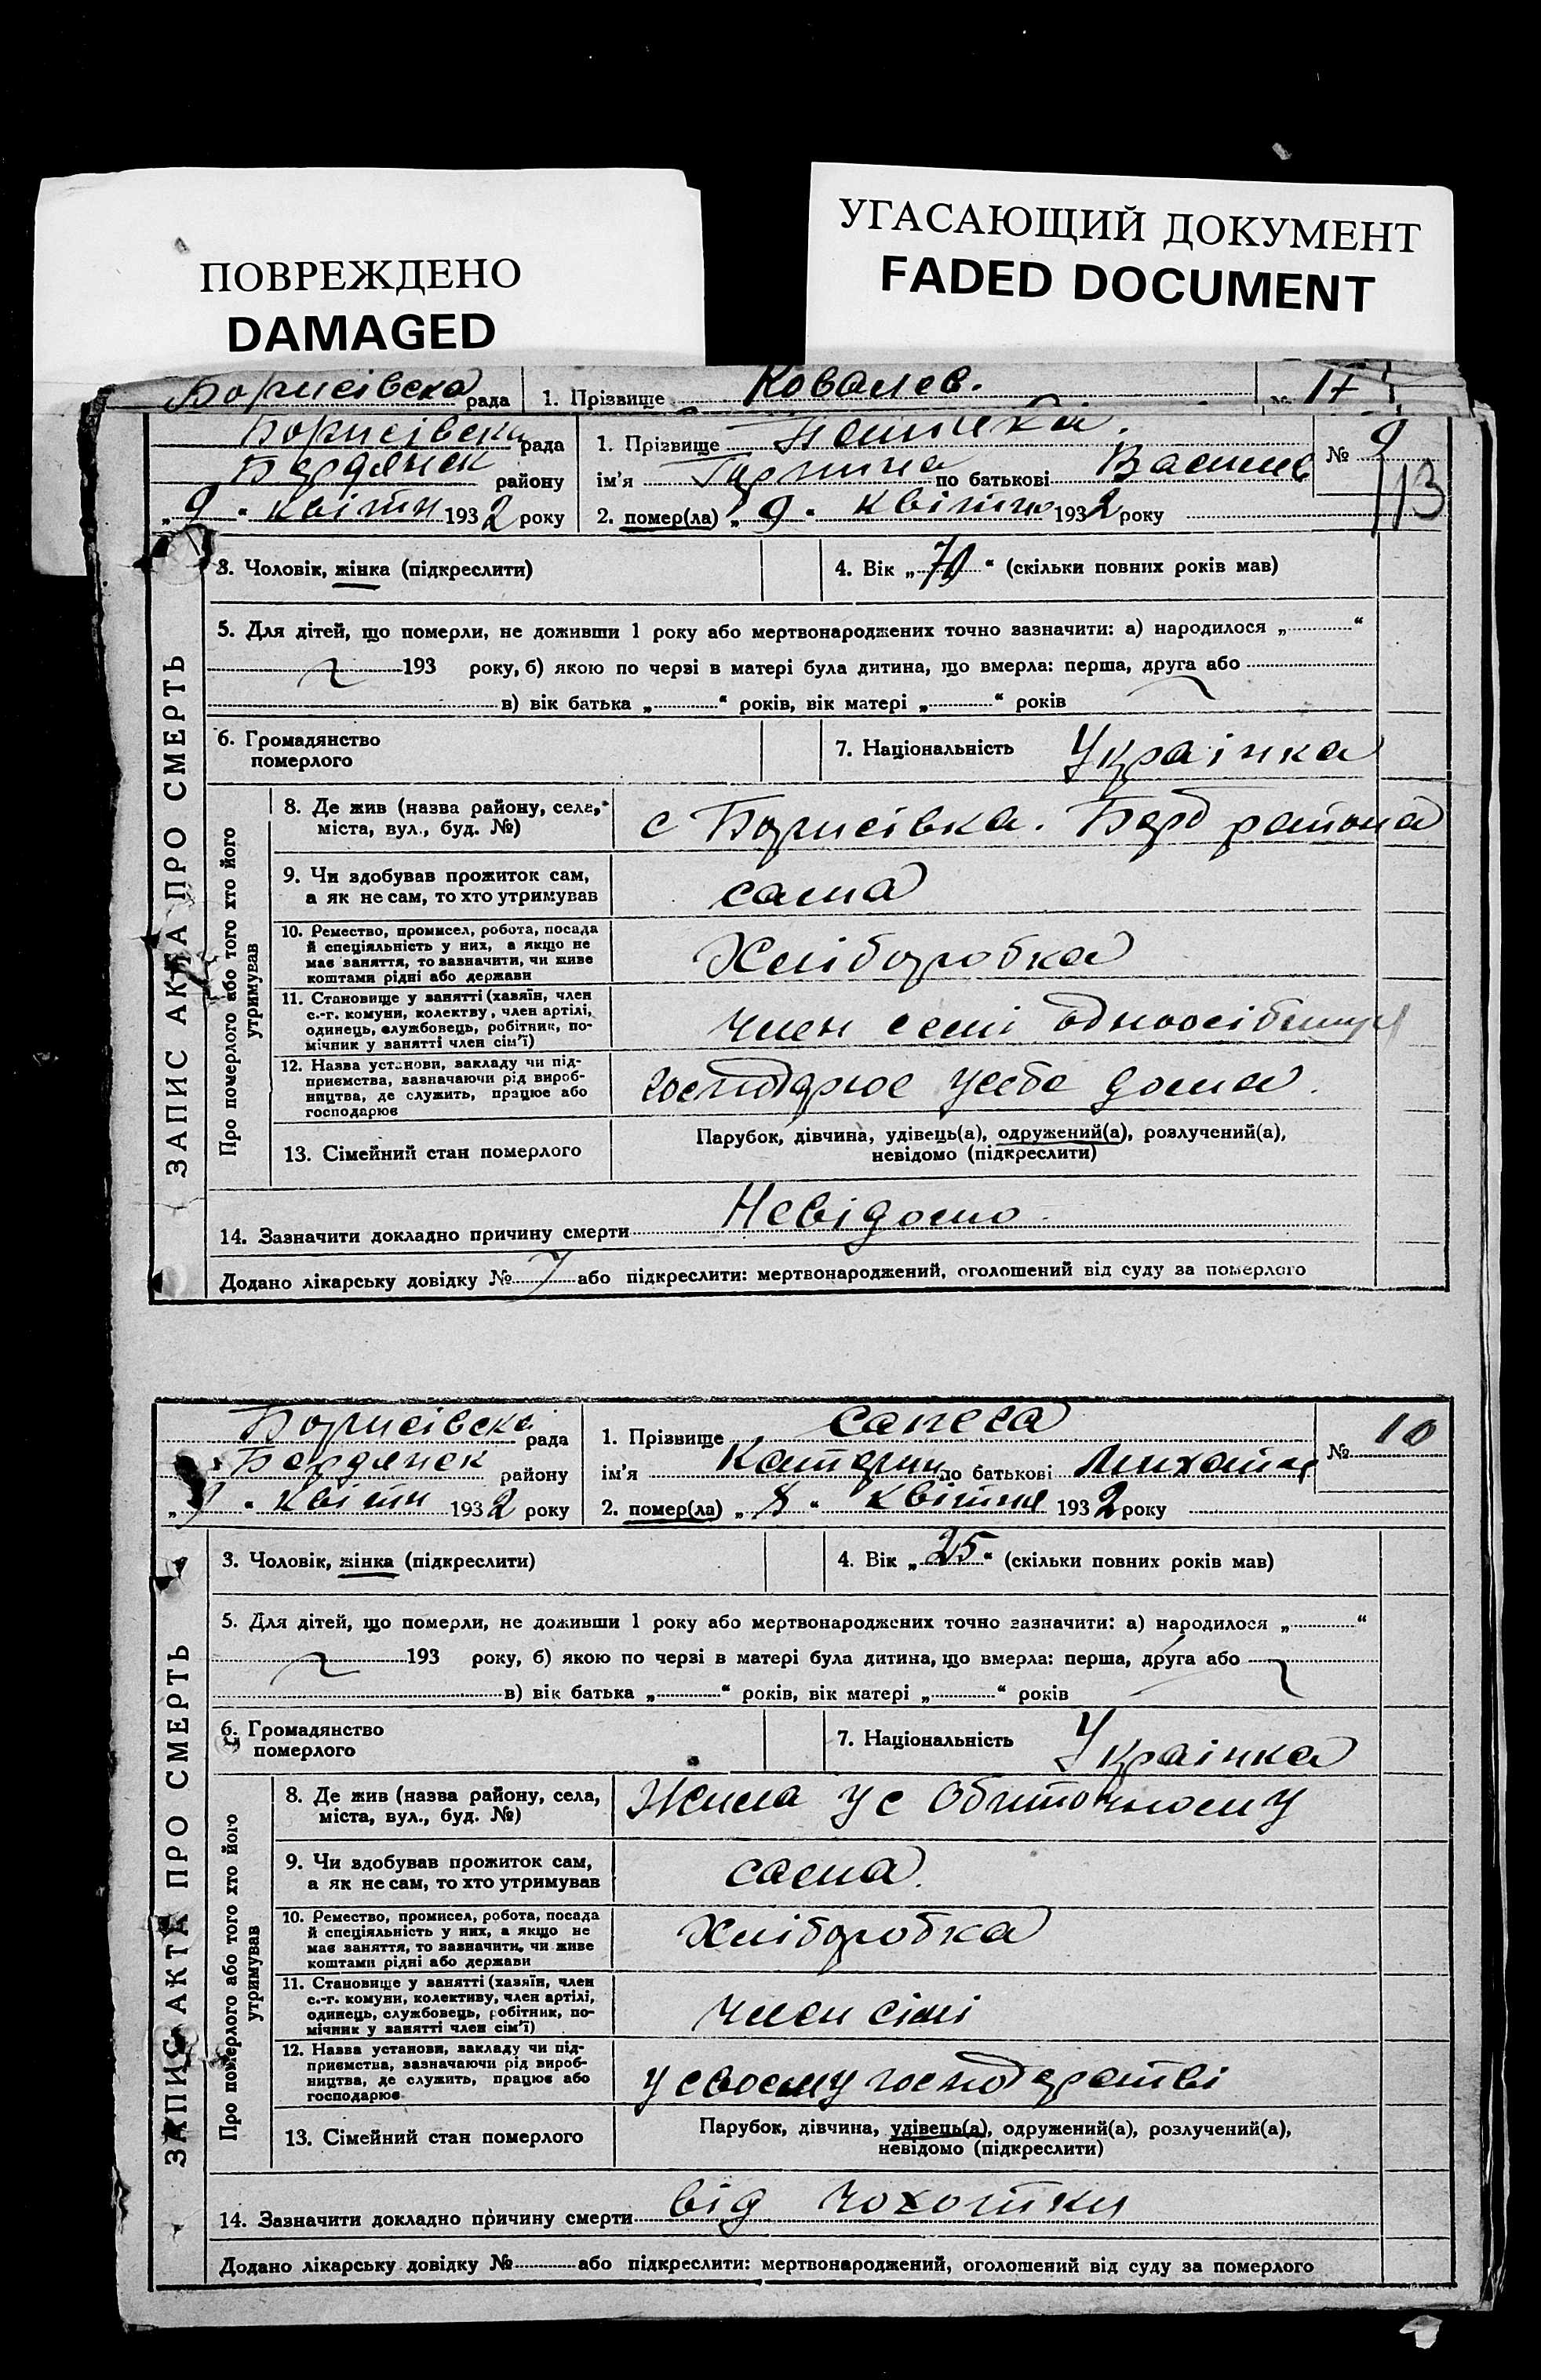 ПОВРЕЖДЕНО
DAMAGED
УГАСАЮЩИЙ ДОКУМЕНТ
FADED DOCUMENT
Борисівська рада 1. Прізвище Ковалев. № 17
Борисівська рада 1. Прізвище № 9
Бердянськ району ім'я по батькові Василів 113
„9" квітн 1932 року 2. помер(ла) „9" квітня 1932 року
3. Чоловік, жінка (підкреслити) 4. Вік „70" (скільки повних років мав)
5. Для дітей, що померли, не доживши 1 року або мертвонароджених точно зазначити: а) народилося „ "
193 року, б) якою по черзі в матері була дитина, що вмерла: перша, друга або
в) вік батька „ " років, вік матері „ " років
6. Громадянство померлого 7. Національність Українка
ЗАПИС АКТА ПРО СМЕРТЬ
Про померлого або того хто його утримував
8. Де жив (назва району, села, міста, вул., буд. №) с Борисівка. Берд района
9. Чи здобував прожиток сам, а як не сам, то хто утримував сама
10. Ремество, промисел, робота, посада й спеціяльність у них, а якщо не має заняття, то зазначити, чи живе коштами рідні або держави Хліборобка
11. Становище у занятті (хазяїн, член с.-г. комуни, колектву, член артілі, одинець, службовець, робітник, помічник у занятті член сім'ї) член семі
12. Назва установи, закладу чи підприємства, зазначаючи рід виробництва, де служить, працює або господарює господарює усебе дома.
13. Сімейний стан померлого Парубок, дівчина, удівець(а), одружений(а), розлучений(а), невідомо (підкреслити)
14. Зазначити докладно причину смерти Невідомо
Додано лікарську довідку № або підкреслити: мертвонароджений, оголошений від суду за померлого
Борисівська рада 1. Прізвище Сапега № 10
Бердянськ району ім'я Катерин по батькові Михайл
„9" квітн 1932 року 2. помер(ла) „8" квітня 1932 року
3. Чоловік, жінка (підкреслити) 4. Вік „25" (скільки повних років мав)
5. Для дітей, що померли, не доживши 1 року або мертвонароджених точно зазначити: а) народилося „ "
193 року, б) якою по черзі в матері була дитина, що вмерла: перша, друга або
в) вік батька „ " років, вік матері „ " років
6. Громадянство померлого 7. Національність Українка
ЗАПИС АКТА ПРО СМЕРТЬ
Про померлого або того хто його утримував
8. Де жив (назва району, села, міста, вул., буд. №) Жила у с Обиточному
9. Чи здобував прожиток сам, а як не сам, то хто утримував сама.
10. Ремество, промисел, робота, посада й спеціяльність у них, а якщо не має заняття, то зазначити, чи живе коштами рідні або держави Хліборобка
11. Становище у занятті (хазяїн, член с.-г. комуни, колективу, член артілі, одинець, службовець, робітник, помічник у занятті член сім'ї) член сімі
12. Назва установи, закладу чи підприємства, зазначаючи рід виробництва, де служить, працює або господарює у своему господарстві
13. Сімейний стан померлого Парубок, дівчина, удівець(а), одружений(а), розлучений(а), невідомо (підкреслити)
14. Зазначити докладно причину смерти від чохотки
Додано лікарську довідку № або підкреслити: мертвонароджений, оголошений від суду за померлого